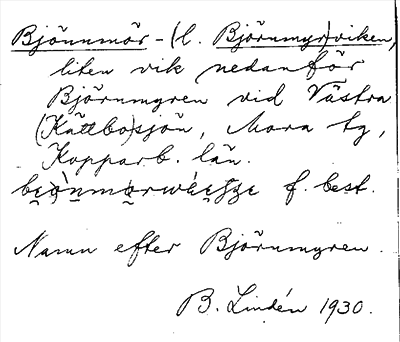 Björnmör-(l. Björnmyr)viken,
liten vik nedanför
Björnmyren vid Västra
(Kättbo)sjön, Mora tg,
Kopparb. län.
f. best.
Namn efter Björnmyren.
B. Lindén 1930.